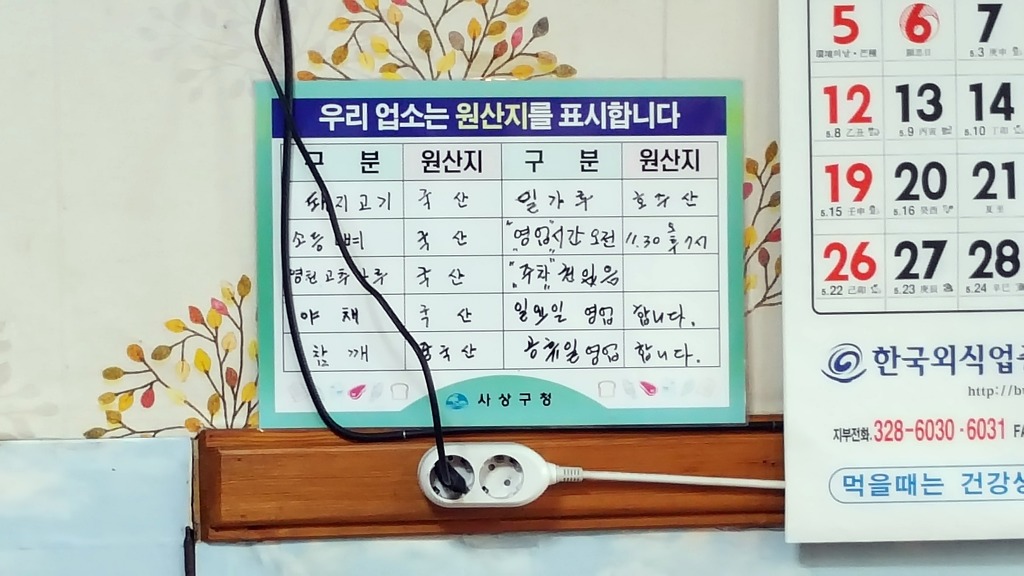 우리 업소는 원산지를 표시합니다
구 분 원산지 구 분 원산지
돼지고기 국산 밀가루 호주산
국산 "영업"시간 오전 11.30 오후 7시
영천 고추가루 국산 "주차" 권있음
야채 국산 일요일 영업 합니다.
참깨 중국산 공휴일 영업 합니다.
사상구청
5 6 7
5.3
12 13 14
5.8 5.9 5.10
19 20 21
5.15 5.16
26 27 28
5.22 5.23 5.24
한국외식업
http://bu
지부전화 328-6030·6031 FA
먹을때는 건강